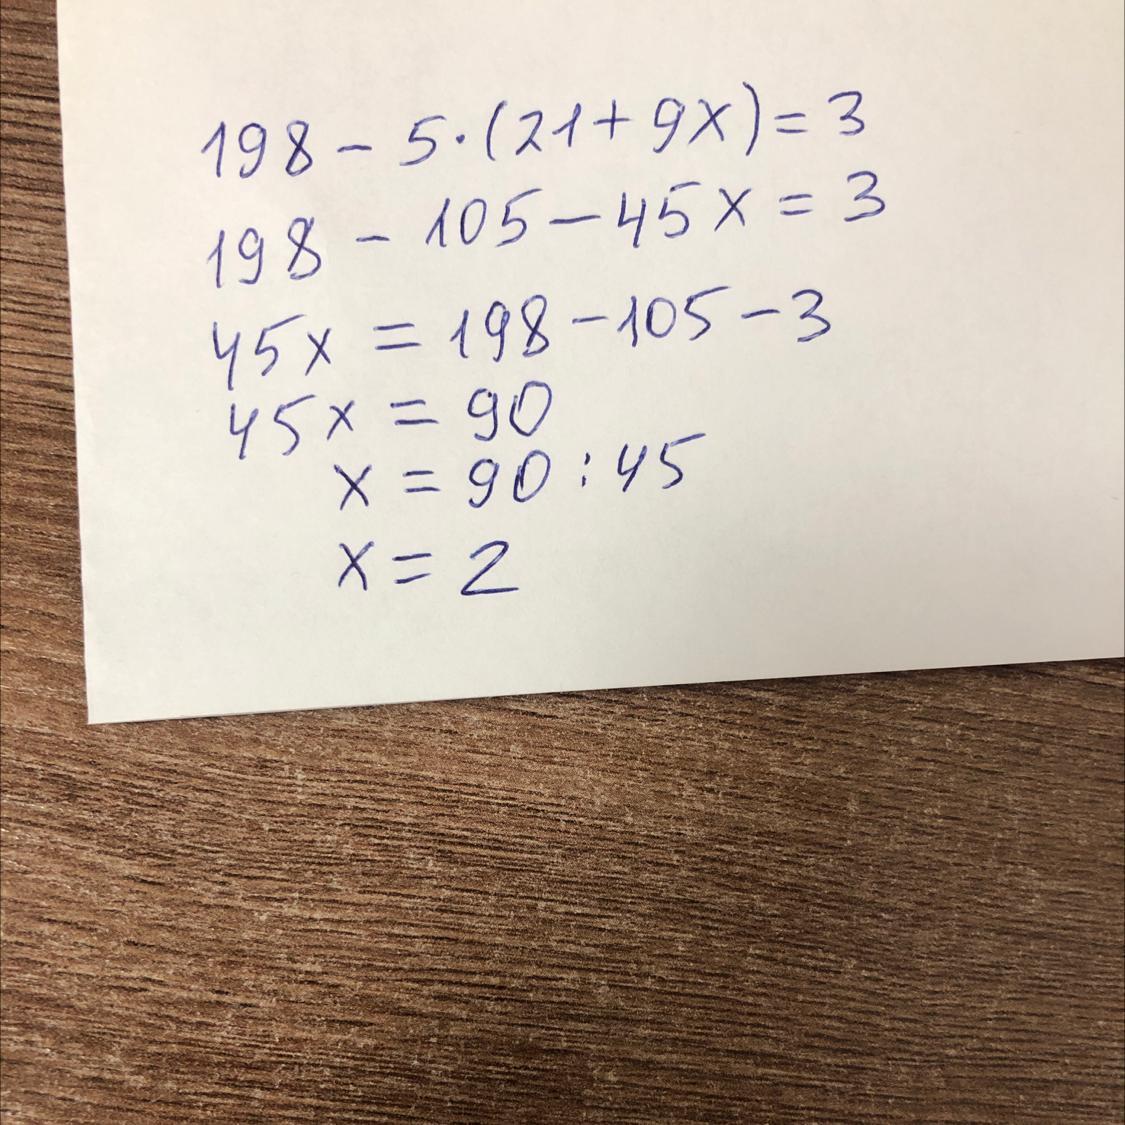 198 - 5·(21+9x)=3
198 - 105-45x=3
45x = 198-105-3
45x = 90
x = 90:45
x = 2